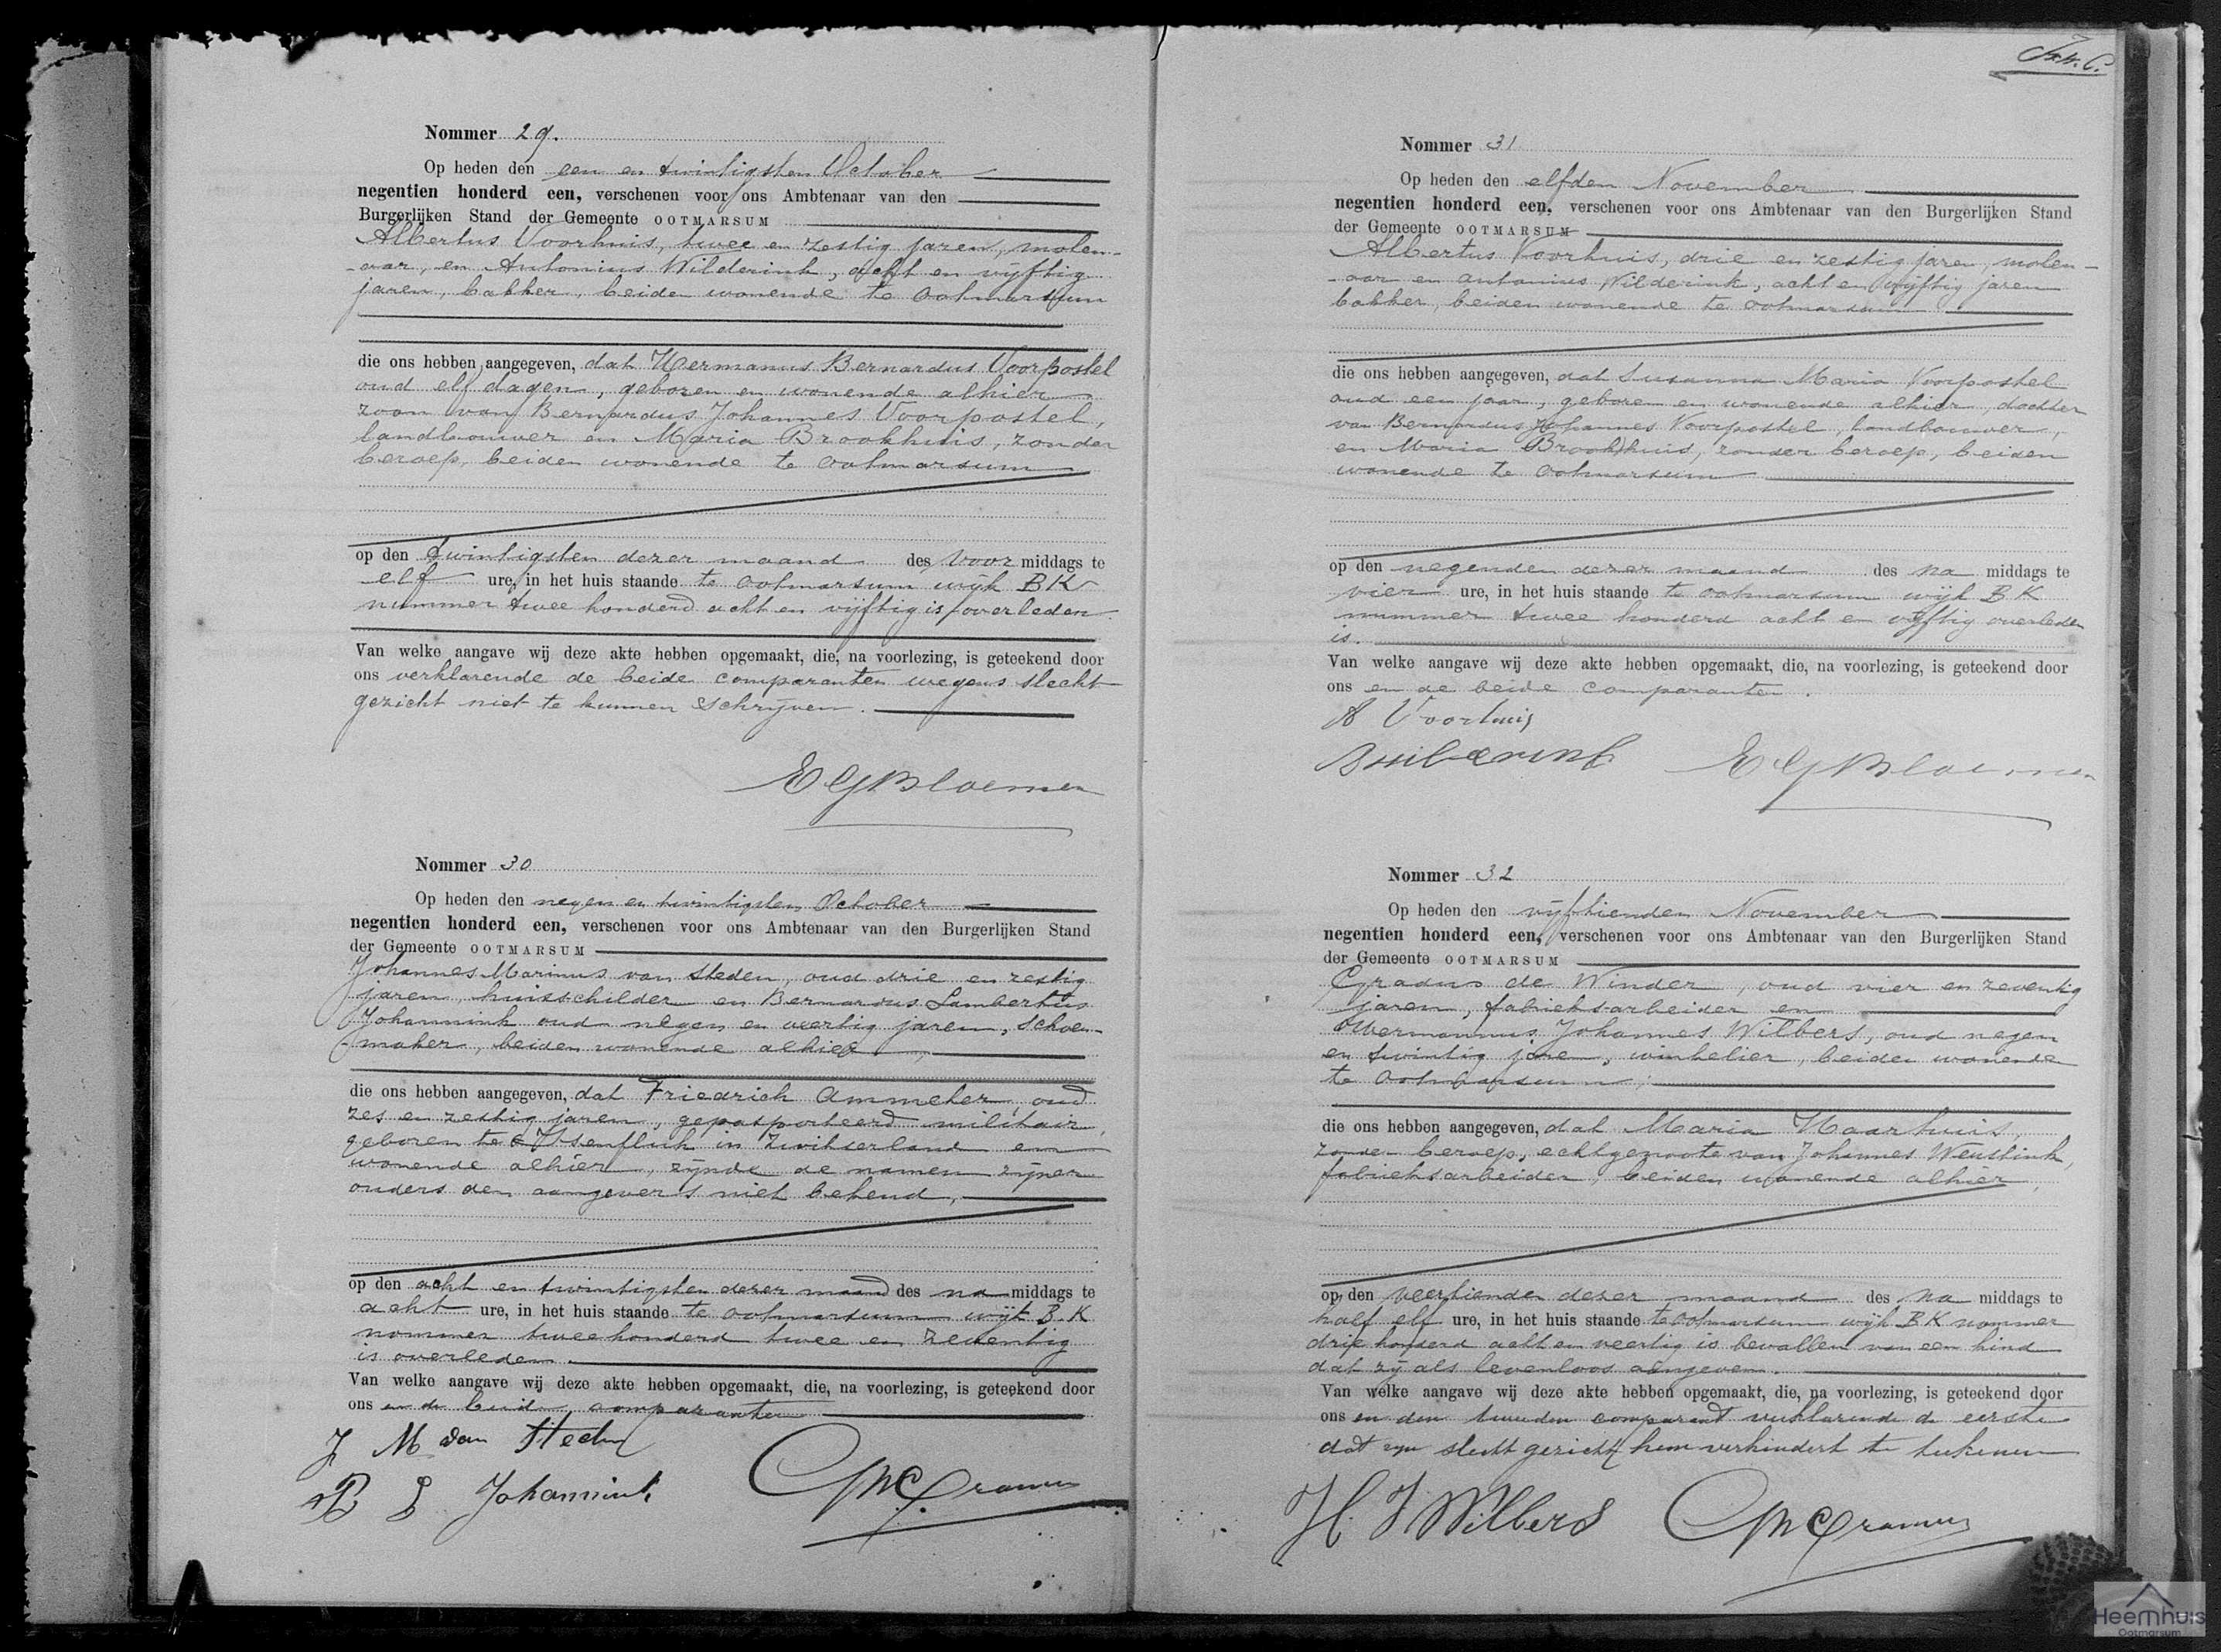 Nommer 29.
Op heden den een en twintigsten October
negentien honderd een, verschenen voor ons Ambtenaar van den
Burgerlijken Stand der Gemeente OOTMARSUM
Albertus Voorhuis, twee en zestig jaren, molen-
-aar, en Antonius Wilderink, acht en vijftig
jaren, bakker, beiden wonende te Ootmarsum
die ons hebben aangegeven, dat Hermanus Bernardus Voorpostel
oud elf dagen, geboren en wonende alhier
zoon van Bernardus Johannes Voorpostel,
landbouwer en Maria Brookhuis, zonder
beroep, beiden wonende te Ootmarsum
op den twintigsten dezer maand des voor middags te
elf ure, in het huis staande te Ootmarsum wijk BK
nummer twee honderd acht en vijftig is overleden.
Van welke aangave wij deze akte hebben opgemaakt, die, na voorlezing, is geteekend door
ons verklarende de beide comparanten wegens slecht
gezicht niet te kunnen schrijven.
E G Bloemen
Nommer 30
Op heden den negen en twintigsten October
negentien honderd een, verschenen voor ons Ambtenaar van den Burgerlijken Stand
der Gemeente OOTMARSUM
Johannes Marinus van Steden, oud drie en zestig
jaren, huisschilder en Bernardus Lambertus
Johannink oud negen en veertig jaren, schoen-
-maker, beiden wonende alhier,
die ons hebben aangegeven, dat Friedrich Ammeter, oud
zes en zestig jaren, gepasporteerd militair,
geboren te Isenfluh in Zwitserland en
wonende alhier, zijnde de namen zijner
ouders den aangevers niet bekend,
op den acht en twintigsten dezer maand des na middags te
acht ure, in het huis staande te Ootmarsum wijk B.K
nommer twee honderd twee en zeventig
is overleden.
Van welke aangave wij deze akte hebben opgemaakt, die, na voorlezing, is geteekend door
ons en de beide comparanten
J M van Steden
B L Johannink
Cramer
Nommer 31
Op heden den elfden November
negentien honderd een, verschenen voor ons Ambtenaar van den Burgerlijken Stand
der Gemeente OOTMARSUM
Albertus Voorhuis, drie en zestig jaren, molen-
-aar en Antonius Wilderink, acht en vijftig jaren
bakker, beiden wonende te Ootmarsum
die ons hebben aangegeven, dat Susanna Maria Voorpostel
oud een jaar, geboren en wonende alhier, dochter
van Bernardus Johannes Voorpostel, landbouwer,
en Maria Brookhuis, zonder beroep, beiden
wonende te Ootmarsum
op den negenden dezer maand des na middags te
vier ure, in het huis staande te Ootmarsum wijk B K
nummer twee honderd acht en vijftig overleden
is.
Van welke aangave wij deze akte hebben opgemaakt, die, na voorlezing, is geteekend door
ons en de beide comparanten.
A Voorhuis
E G Bloemen
Nommer 32
Op heden den vijftienden November
negentien honderd een, verschenen voor ons Ambtenaar van den Burgerlijken Stand
der Gemeente OOTMARSUM
Gradus de Winder, oud vier en zeventig
jaren, fabrieksarbeider en
Hermannus Johannes Wilbers, oud negen
en twintig jaren, winkelier, beiden wonende
te Ootmarsum,
die ons hebben aangegeven, dat Maria Haarhuis,
zonder beroep, echtgenoote van Johannes Weustink,
fabrieksarbeider, beiden wonende alhier,
op den veertienden dezer maand des na middags te
half elf ure, in het huis staande te Ootmarsum wijk BK nommer
drie honderd acht en veertig is bevallen van een kind
dat zij als levenloos aangeven.
Van welke aangave wij deze akte hebben opgemaakt, die, na voorlezing, is geteekend door
ons en den tweeden comparant verklarende de eerste
dat zijn slecht gezicht hem verhindert te teekenen
H. J Wilbers
Cramer
Heemhuis
Ootmarsum